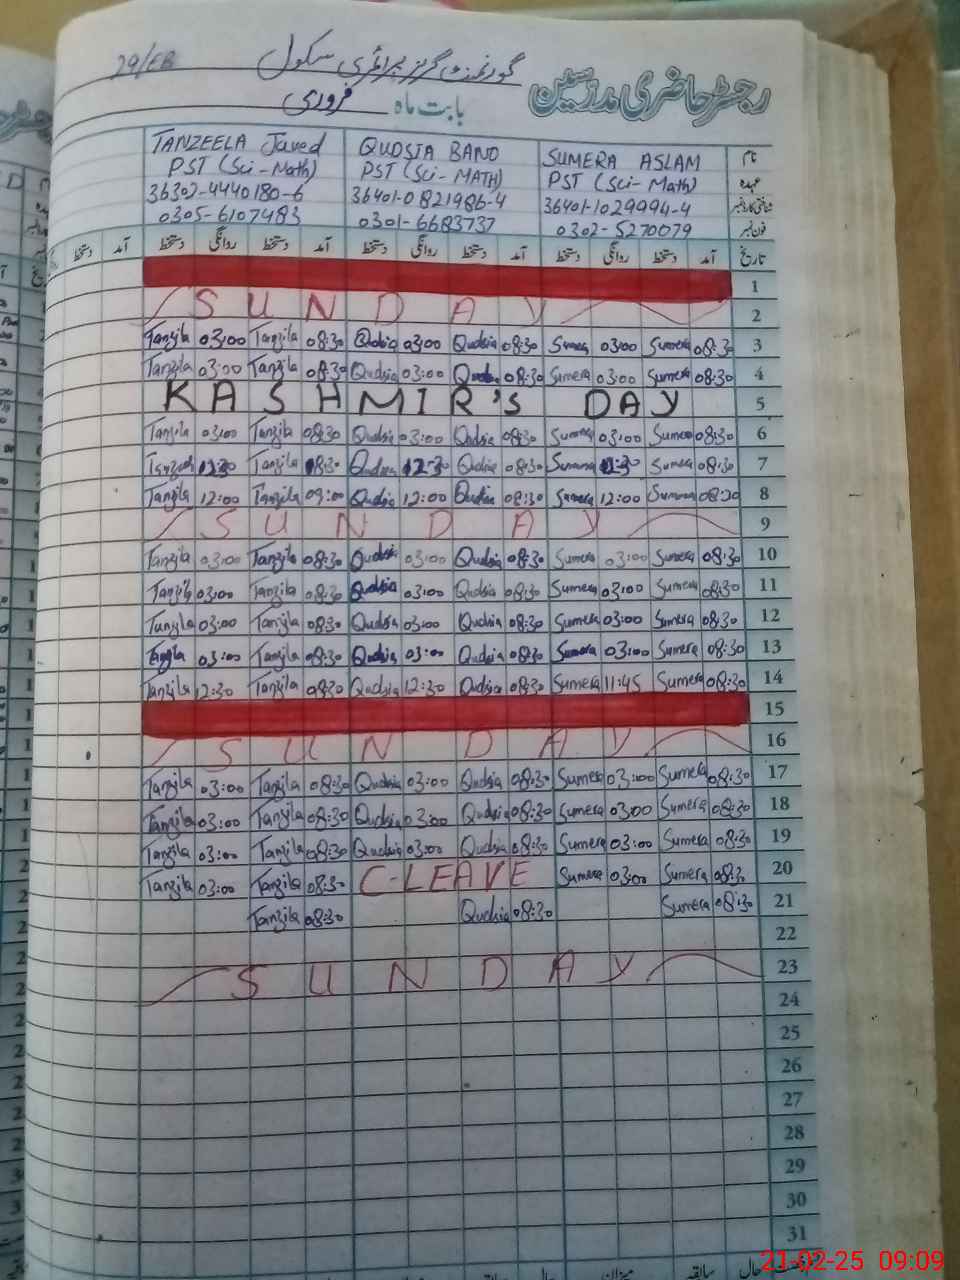 29/EB گورنمنٹ گرلز پرائمری سکول
رجسٹر حاضری مدرسین
بابت ماہ فروری
TANZEELA Javed QUDSIA BANO SUMERA ASLAM نام
PST (Sci-Math) PST (Sci-MATH) PST (Sci-Math) عہدہ
36302-4440180-6 36401-0821986-4 36401-1029994-4 شناختی کارڈ نمبر
0305-6107483 0301-6683737 0302-5270079 فون نمبر
دستخط آمد دستخط روانگی دستخط آمد دستخط روانگی دستخط آمد دستخط روانگی دستخط آمد تاریخ
1
SUNDAY 2
Tanzila 03:00 Tanzila 08:30 Qudsia 03:00 Qudsia 08:30 Sumera 03:00 Sumera 08:30 3
Tanzila 03:00 Tanzila 08:30 Qudsia 03:00 Qudsia 08:30 Sumera 03:00 Sumera 08:30 4
KASHMIR's DAY 5
Tanzila 03:00 Tanzila 08:30 Qudsia 03:00 Qudsia 08:30 Sumera 03:00 Sumera 08:30 6
Tanzila 08:30 Qudsia 12:30 Qudsia 08:30 Sumera 08:30 7
Tanzila 12:00 Tanzila 09:00 Qudsia 12:00 Qudsia 08:30 Sumera 12:00 Sumera 08:30 8
SUNDAY 9
Tanzila 03:00 Tanzila 08:30 Qudsia 03:00 Qudsia 08:30 Sumera 03:00 Sumera 08:30 10
Tanzila 03:00 Tanzila 08:30 Qudsia 03:00 Qudsia 08:30 Sumera 03:00 Sumera 08:30 11
Tanzila 03:00 Tanzila 08:30 Qudsia 03:00 Qudsia 08:30 Sumera 03:00 Sumera 08:30 12
Tanzila 03:00 Tanzila 08:30 Qudsia 03:00 Qudsia 08:30 Sumera 03:00 Sumera 08:30 13
Tanzila 12:30 Tanzila 08:30 Qudsia 12:30 Qudsia 08:30 Sumera 11:45 Sumera 08:30 14
15
SUNDAY 16
Tanzila 03:00 Tanzila 08:30 Qudsia 03:00 Qudsia 08:30 Sumera 03:00 Sumera 08:30 17
Tanzila 03:00 Tanzila 08:30 Qudsia 03:00 Qudsia 08:30 Sumera 03:00 Sumera 08:30 18
Tanzila 03:00 Tanzila 08:30 Qudsia 03:00 Qudsia 08:30 Sumera 03:00 Sumera 08:30 19
Tanzila 03:00 Tanzila 08:30 C-LEAVE Sumera 03:00 Sumera 08:30 20
Tanzila 08:30 Qudsia 08:30 Sumera 08:30 21
22
SUNDAY 23
24
25
26
27
28
29
30
31
میزان سابقہ حال
21-02-25 09:09